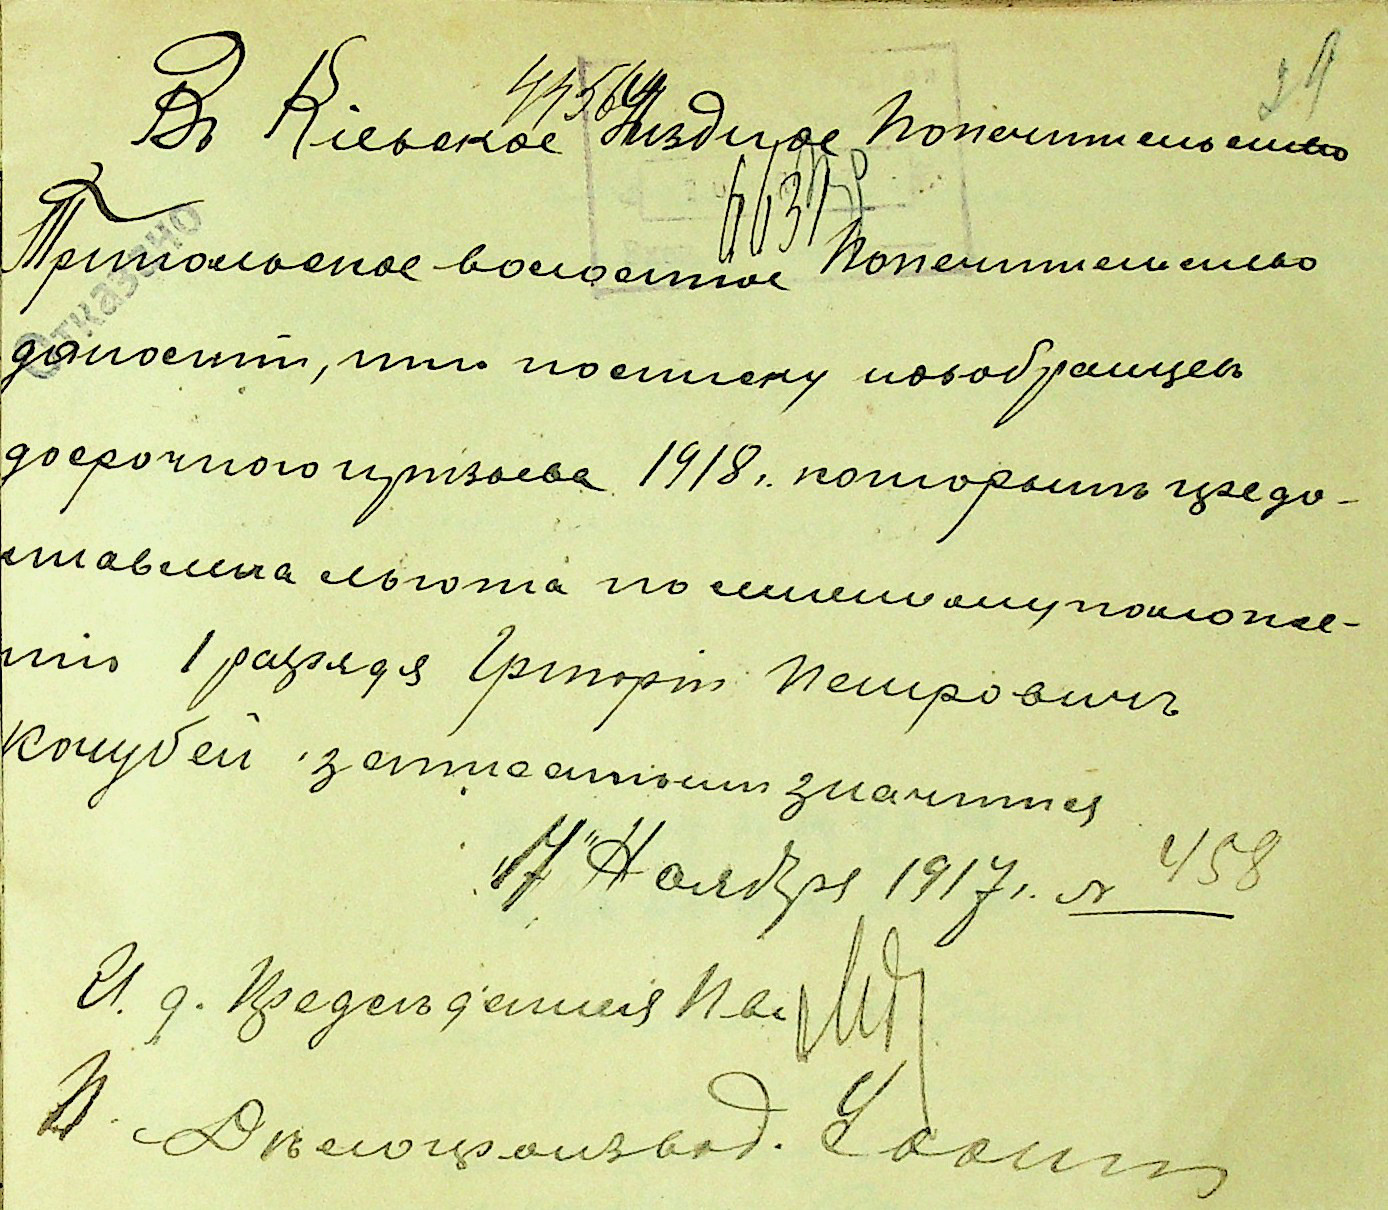 29
44564
Въ Кіевское Уѣздное Попечительство
6637
Отказано
Трипольское волостное Попечительство
доноситъ, что по списку новобранцевъ
досрочного призыва 1918 г. которымъ предо-
ставлена льгота по семейному положе-
нію 1 разряда Григорій Петровичъ
Кочубей записаннымъ значится
"17" Ноября 1917 г. № 458
И. д. Предсѣдателя
Дѣлопроизвод.